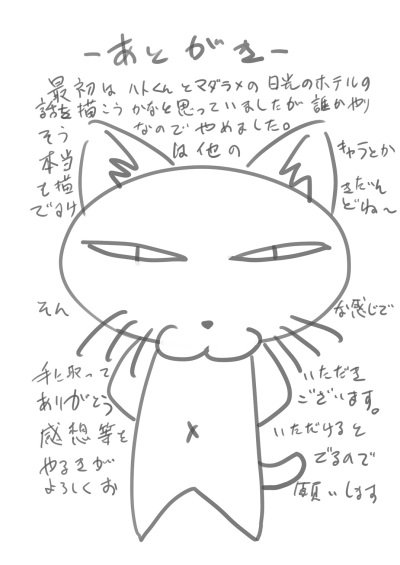 -あとがき-
最初はハトくんとマダラメの日光のホテルの
話を描こうかなと思っていましたが誰かやり
そうなのでやめました。
本当は他のキャラとか
も描きたいん
ですけどね～
そんな感じで
手に取っていただき
ありがとうございます。
感想等をいただけると
やるきがでるので
よろしくお願いします